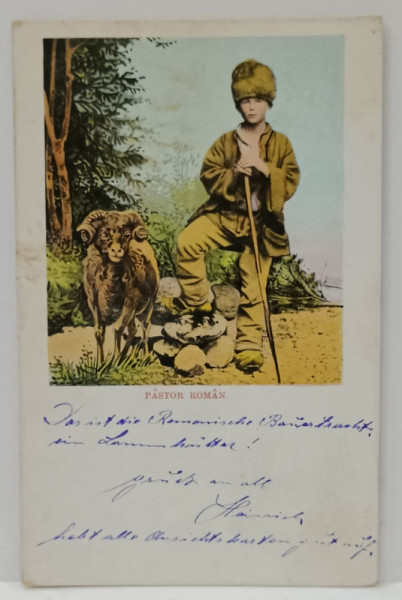 PĂSTOR ROMÂN.
Das ist die Romanische Bauertracht,
ein Lammhütter!
gruß an all
Heinrich
hebt alle Ansichtskarten gut auf.